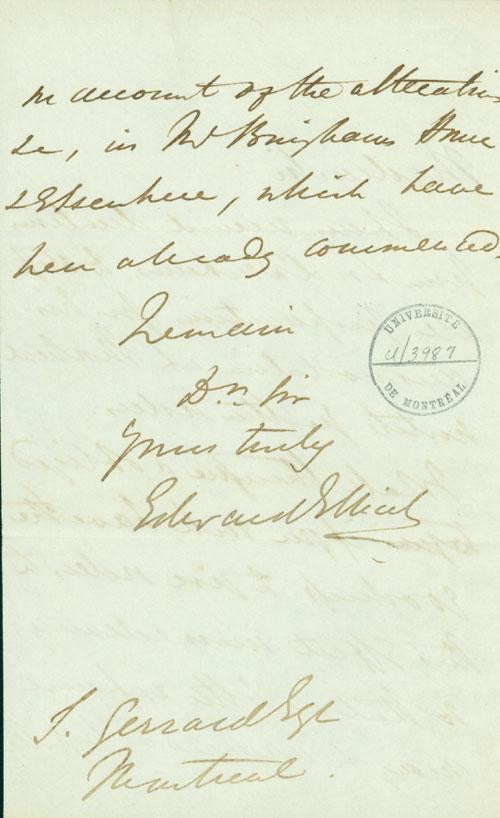 on account of the alteratio
&c, in Mr Binghams House
& Elsewhere, which have
been already commenced,
Remain
Dr Sir
Yours truly
Edward Ellice
UNIVERSITÉ
U/3987
DE MONTRÉAL
S. Gerrard Esqr
Montreal.